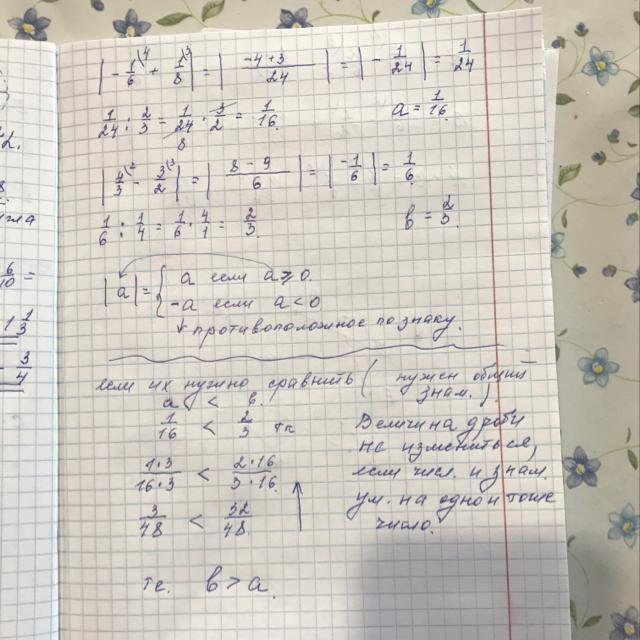 |-1/6 + 1/8| = |(-4+3)/24| = |-1/24| = 1/24
1/24 : 2/3 = 1/24 · 3/2 = 1/16 a = 1/16
|4/3 - 3/2| = |(8-9)/6| = |-1/6| = 1/6
1/6 : 1/4 = 1/6 · 4/1 = 2/3 в = 2/3
|a| = { a если a ≥ 0.
-a если a < 0
противоположное по знаку.
если их нужно сравнить (нужен общий
знам.)
a < в.
1/16 < 2/3 тк
1·3/16·3 < 2·16/3·16
3/48 < 32/48
Величина дроби
не измениться,
если числ. и знам.
ум. на одно и тоже
число.
те. в > a.
2.
6/10 =
1 1/3
3/4